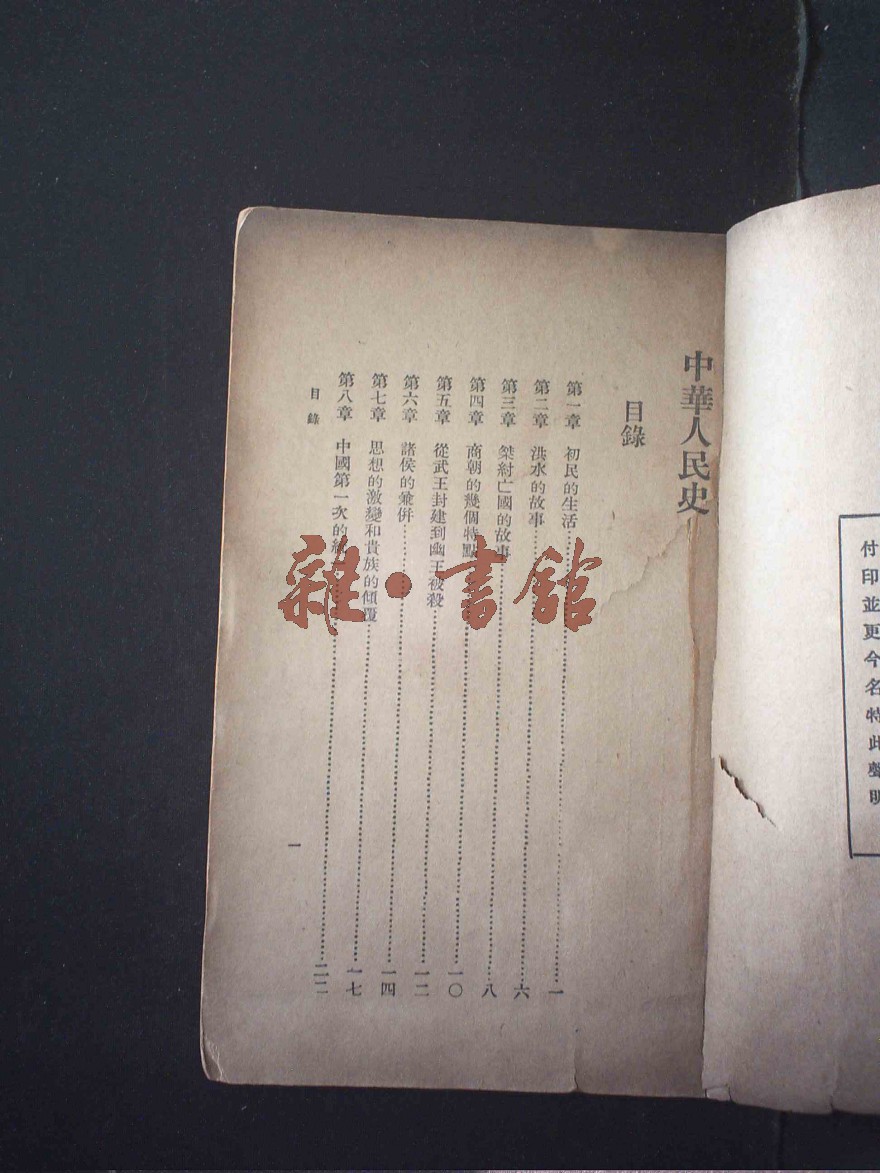 付印並更今名特此聲明
中華人民史
目錄
第一章 初民的生活 一
第二章 洪水的故事 六
第三章 桀紂亡國的故事 八
第四章 商朝的幾個特點 一〇
第五章 從武王封建到幽王被殺 一二
第六章 諸侯的兼併 一四
第七章 思想的激變和貴族的傾覆 一七
第八章 中國第一次的統 二二
目錄
一
雜·書館